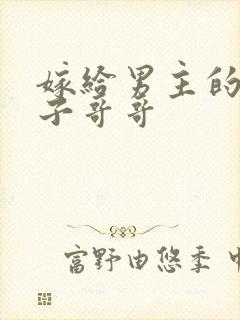 嫁给男主的
子哥哥
富野由悠季